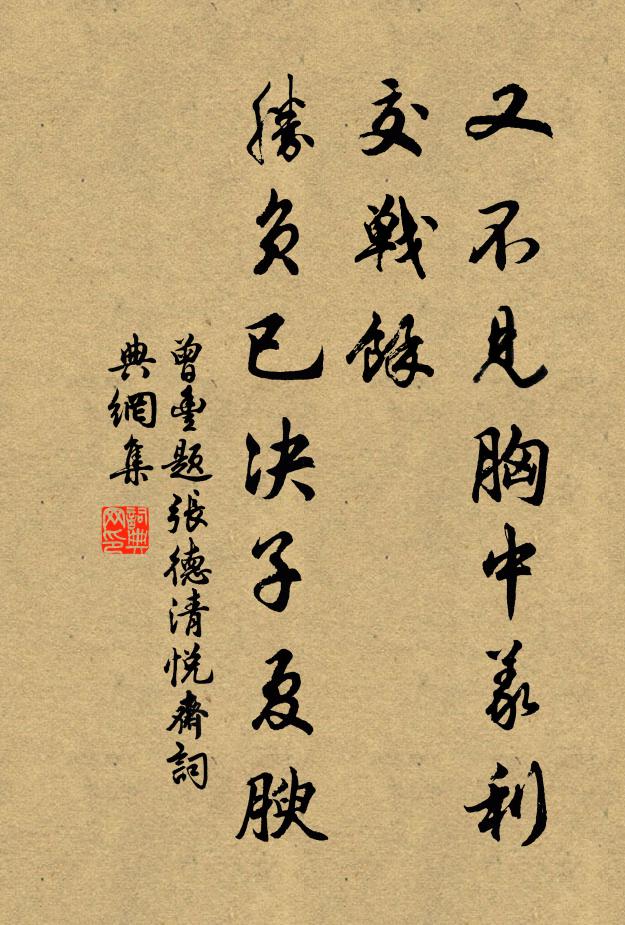 又不見胸中義利
交戰餘
勝負已決子夏腴
曾豐題張德清悅齋詞
典網集
詞典
网印